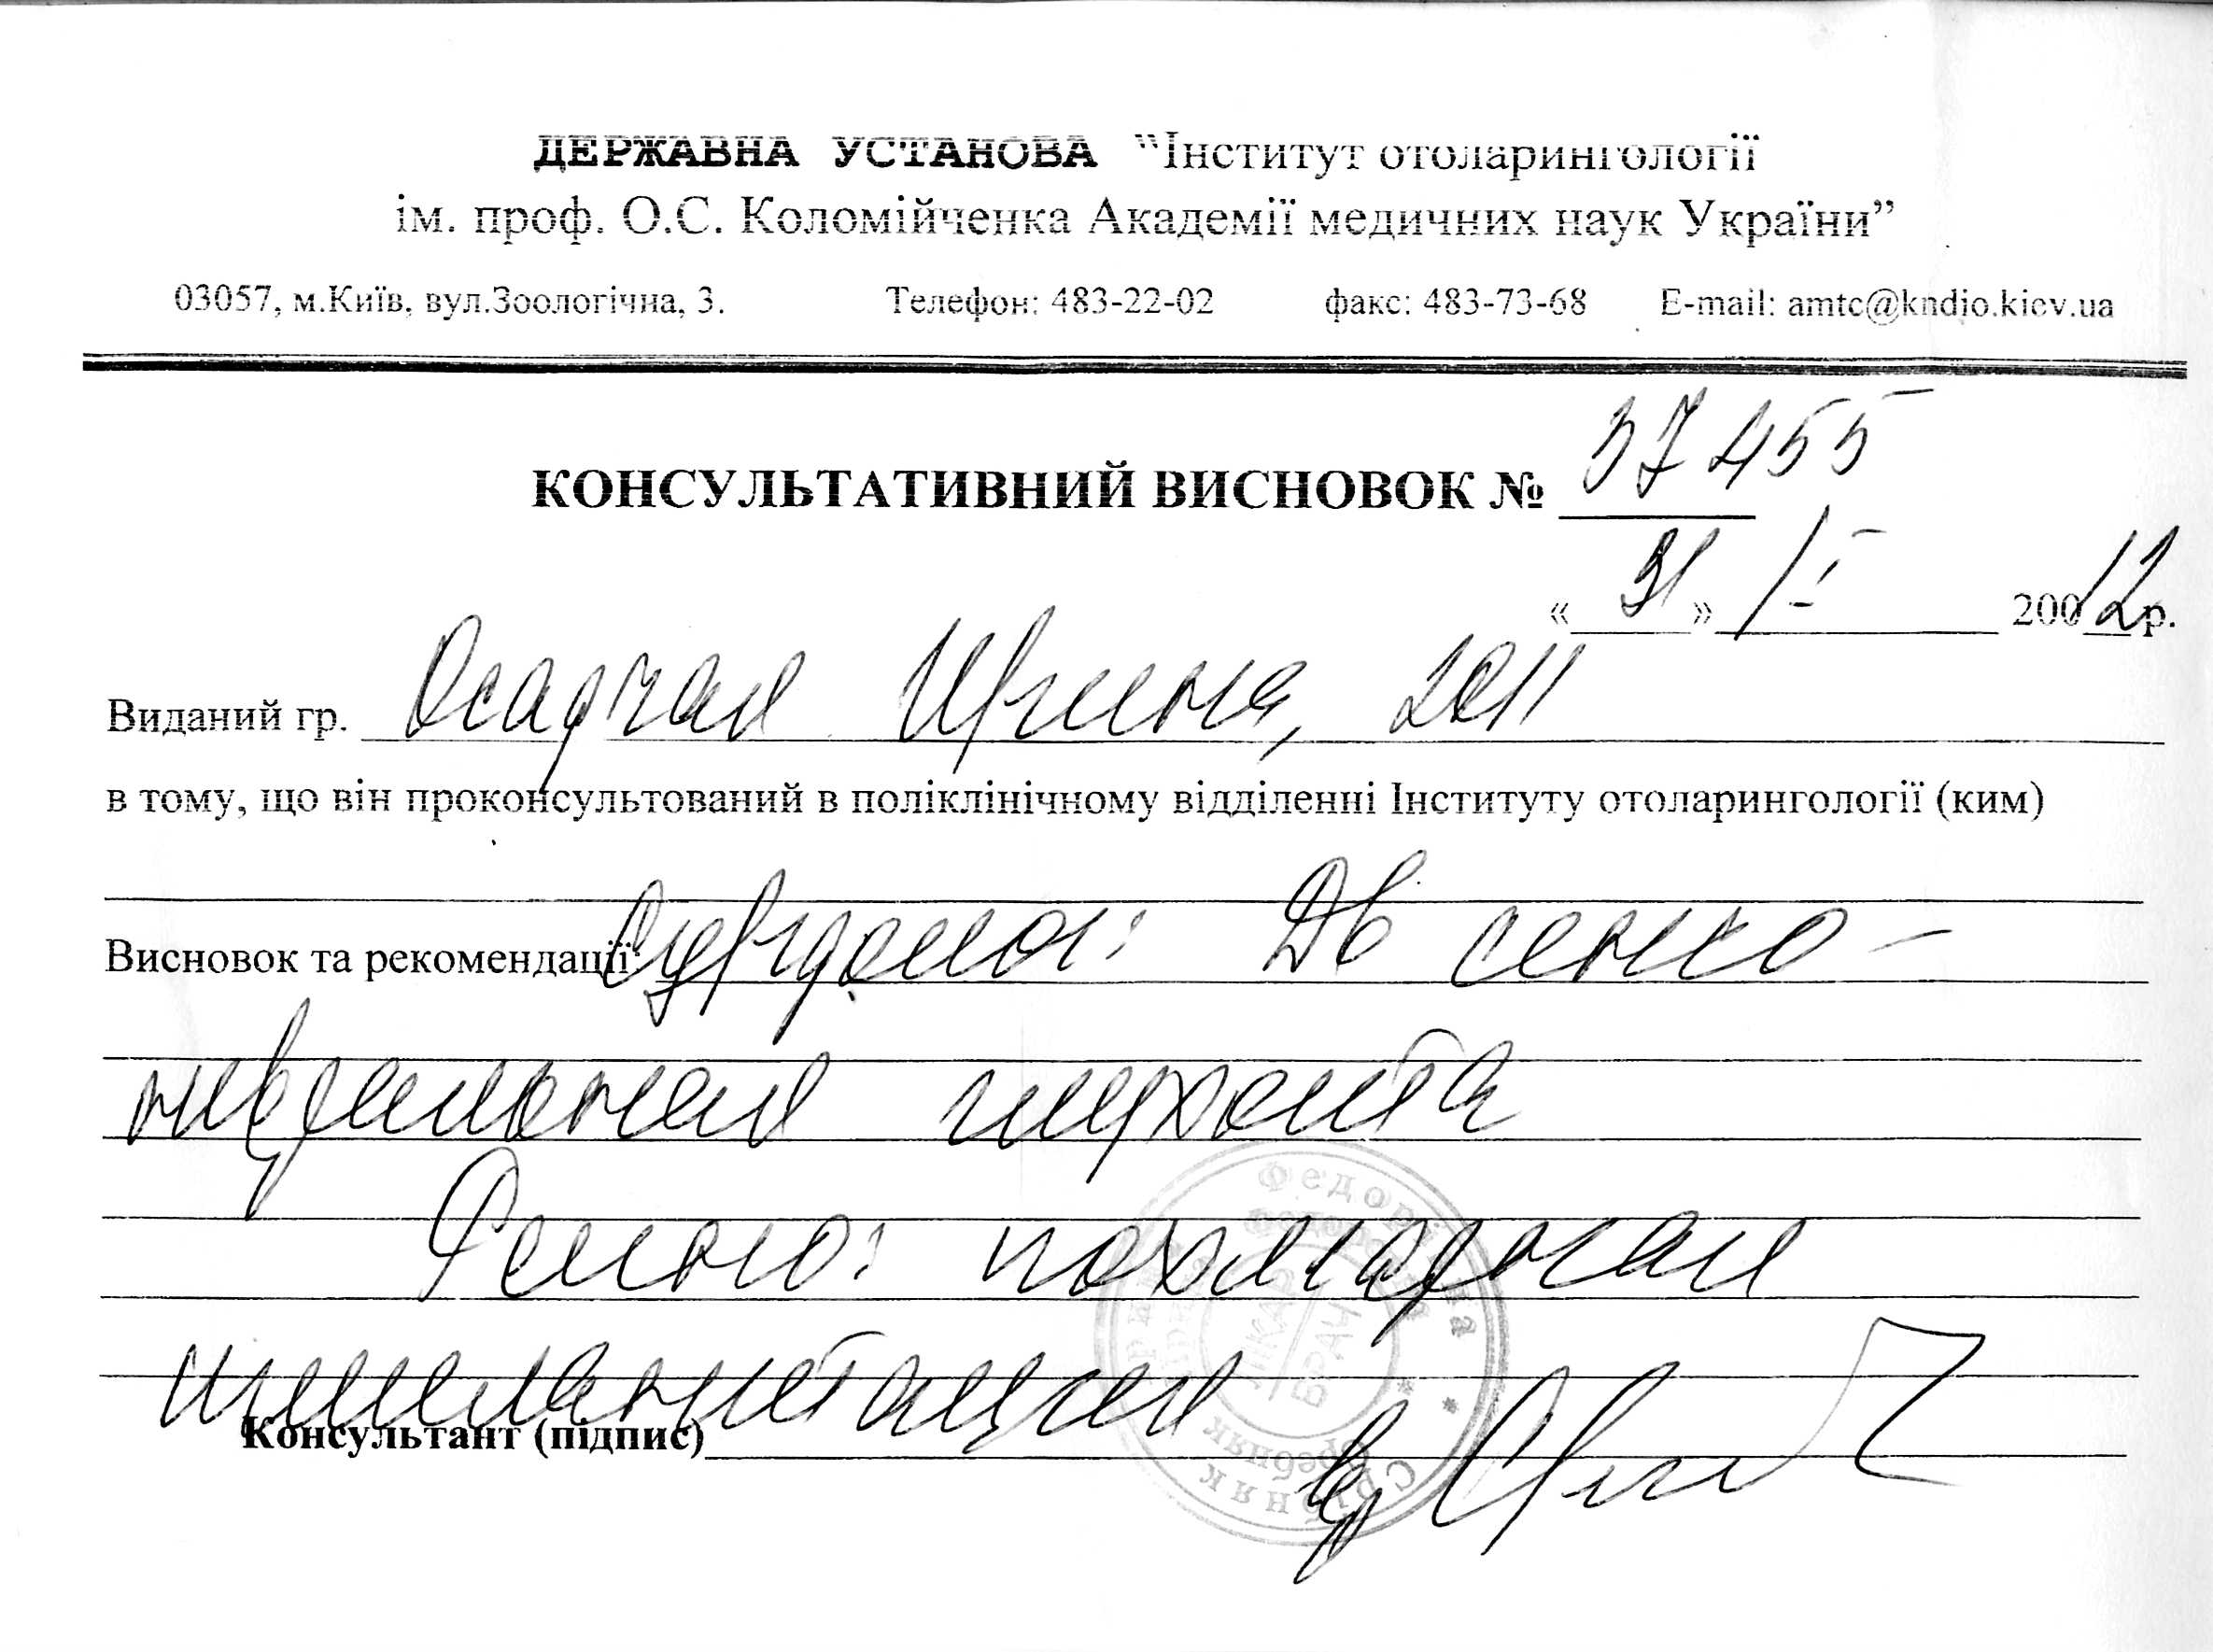 ДЕРЖАВНА УСТАНОВА “Інститут отоларингології
ім. проф. О.С. Коломійченка Академії медичних наук України”
03057, м.Київ, вул.Зоологічна, 3. Телефон: 483-22-02 факс: 483-73-68 E-mail: amtc@kndio.kiev.ua
КОНСУЛЬТАТИВНИЙ ВИСНОВОК № 37455
«31» I 2012 р.
Виданий гр. Осадчая Ирина, 2011
в тому, що він проконсультований в поліклінічному відділенні Інституту отоларингології (ким)
Висновок та рекомендації: Сурдолог: Дв сенсо-
невральная глухота
Реком: кохлеарная
имплантация
Консультант (підпис)
Срібняк
Сребняк
ЛІКАР
ВРАЧ